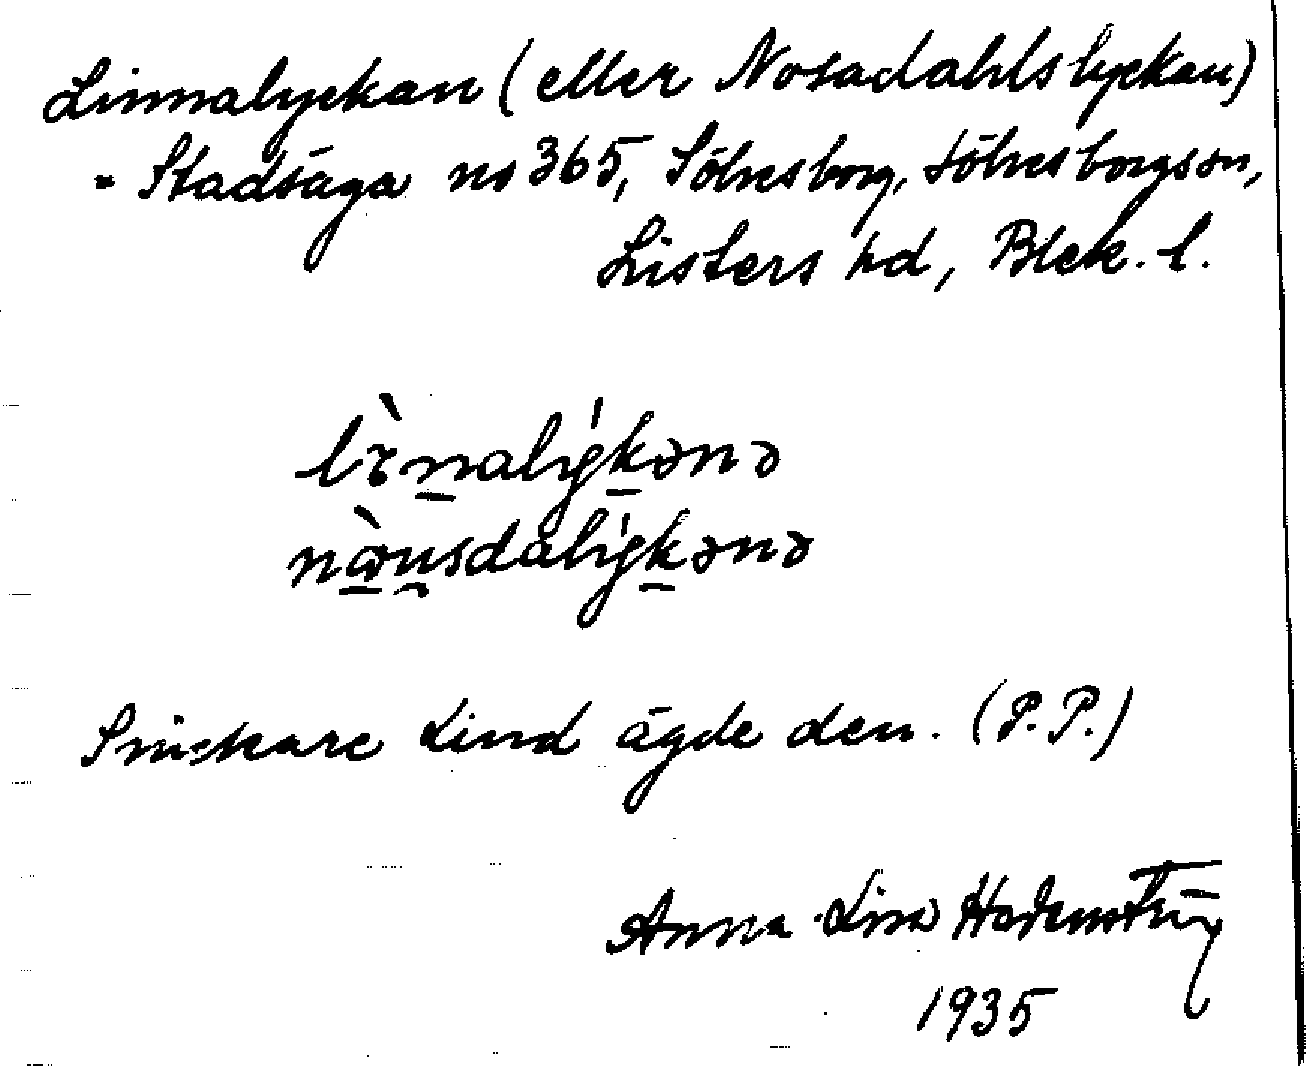 Linnalyckan (eller Nosadahlslyckan)
= Stadsäga no 365, Sölvesborg, Sölvesborgs sn,
Listers hd, Blek. l.
lìnalýkənə
nàusdalýkənə
Snickare Lind ägde den. (P. P.)
Anna Lisa
1935